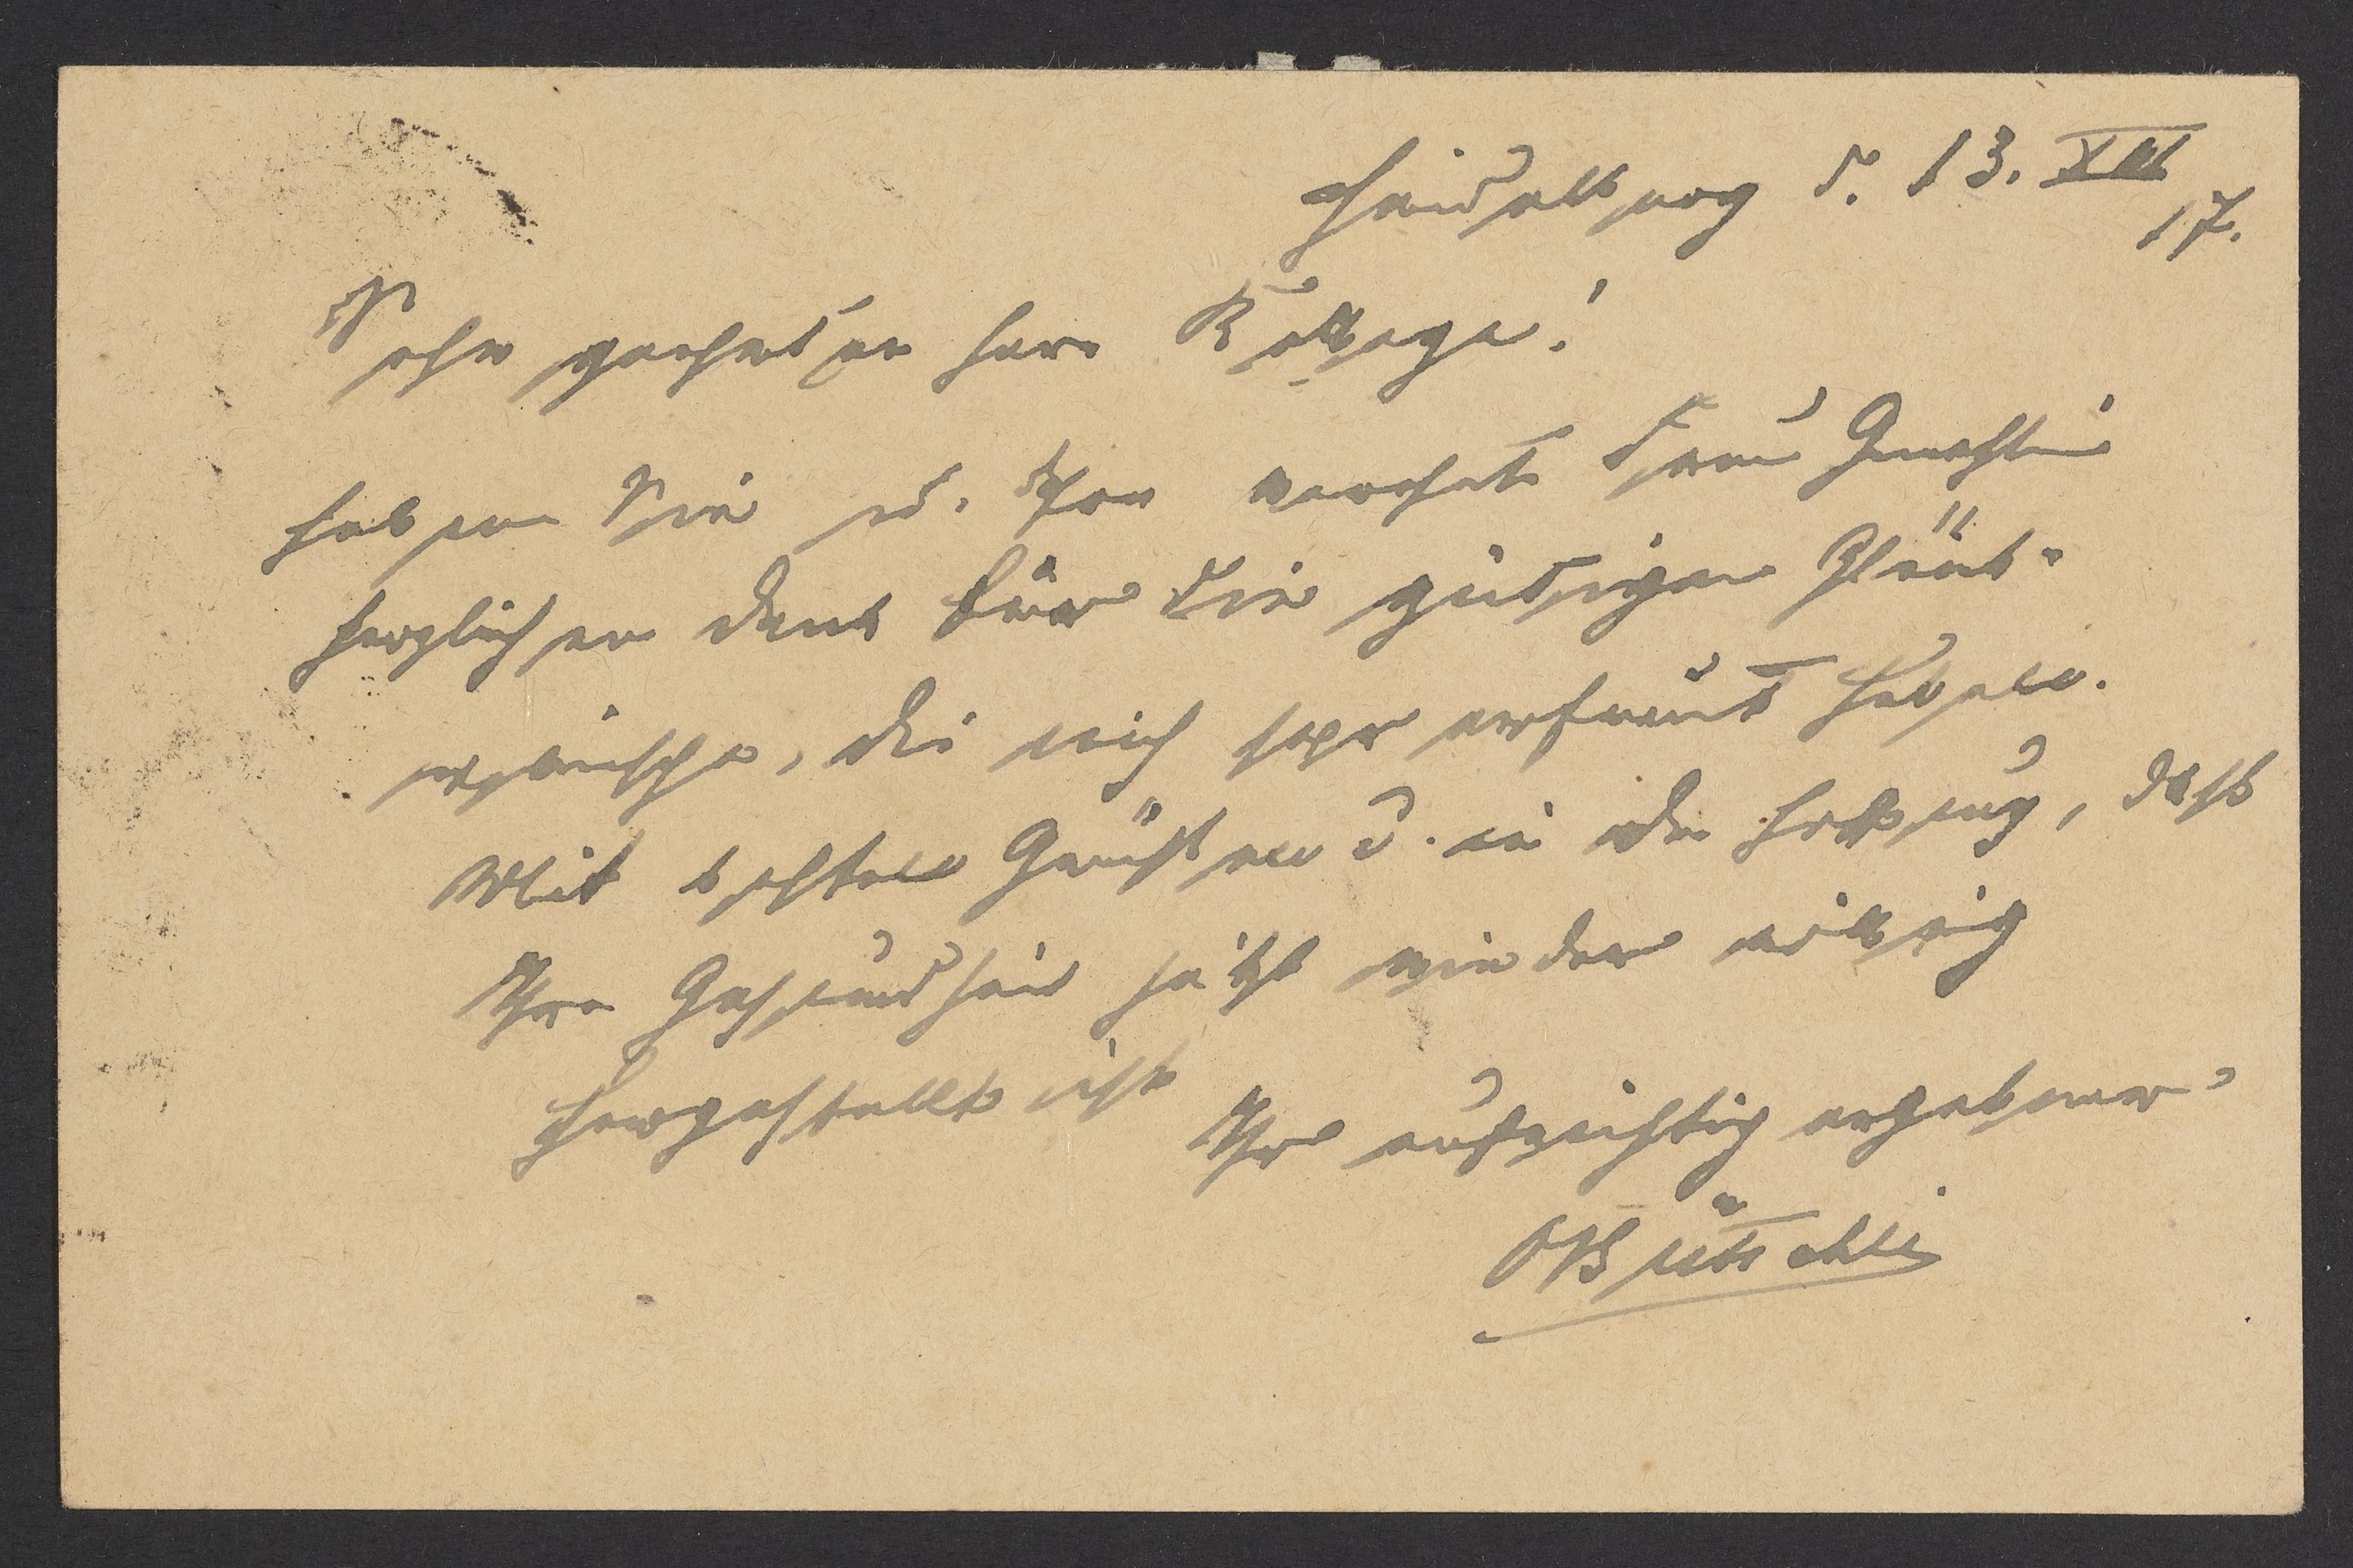 Heidelberg d. 13. XII
17.
Sehr geehrter Herr Kollege!
Haben Sie u. Ihre verehrte Frau Gemahlin
herzlichen Dank für die gütigen Glück-
wünsche, die mich sehr erfreut haben.
Mit besten Grüssen u. in der Hoffnung, dass
Ihre Gesundheit jetzt wieder völlig
hergestellt ist
Ihr aufrichtig ergebener
OBütschli